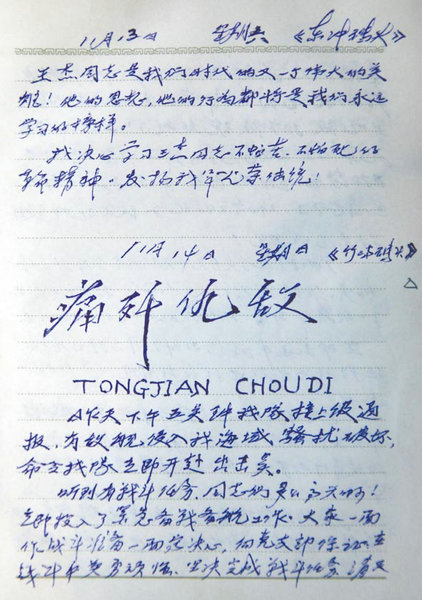 11月13日 星期六 《东冲码头》
王杰同志是我们时代的又一个伟大的英
雄！他的思想，他的行为都将是我们永远
学习的榜样。
我决心学习王杰同志不怕苦、不怕死的
革命精神。发扬我军光荣传统！
11月14日 星期日 《竹 码头》
痛歼仇敌
TONGJIAN CHOUDI
昨天下午五点钟我队接上级通
报，有敌舰侵入我海域，骚扰破坏，
命令我队立即开赴出击点。
听到有战斗任务，同志们多么高兴啊！
立即投入了紧急备战备航工作。大家一面
作战斗准备一面表决心，向党支部保证在
战斗中英勇顽强、坚决完成战斗任务